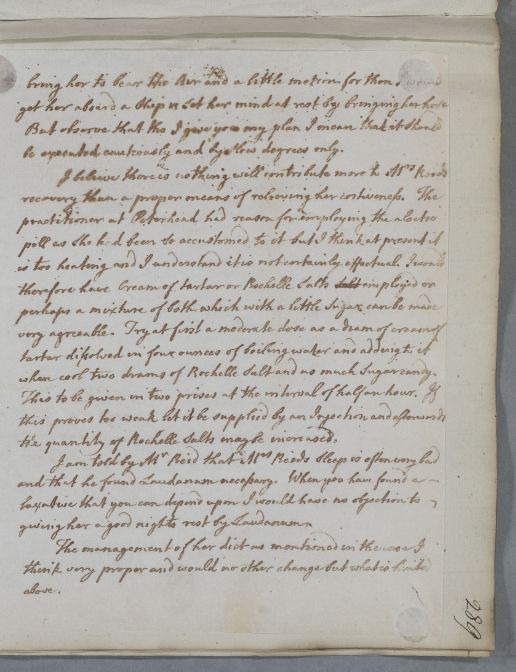 bring her to bear the Air and a little motion for then I would
get her aboard a Ship & set her mind at rest by bringing her home
But observe that tho I give you my plan I mean that it should
be executed cautiously and by slow degrees only.
I beleive there is nothing will contribute more to Mrs Reids
recovery than a proper means of relieving her costiveness. The
practitioner at Peterhead had reason for employing the aloetic
pill as she had been so accustomed to it but I think at present it
is too heating and I understand it is not certainly effectual. I would
therefore have Cream of tartar or Rochelle Salts employed or
perhaps a mixture of both which with a little Sugar can be made
very agreeable. Try at first a moderate dose as a dram of cream of
tartar disolved in four ounces of boiling water and adding to it
when cool two drams of Rochelle Salt and as much Sugar candy.
This to be given in two prises at the interval of half an hour. If
this proves too weak let it be supplied by an Injection and afterwards
the quantity of Rochelle Salts may be increased.
I am told by Mr Reid that Mrs Reids Sleep is often very bad
and that he found Laudanum necessary. When you have found a
laxative that you can depend upon I would have no objection to
giving her a good nights rest by Laudanum
The management of her diet as mentioned in the case I
think very proper and would no other change but what is hinted
above.
289